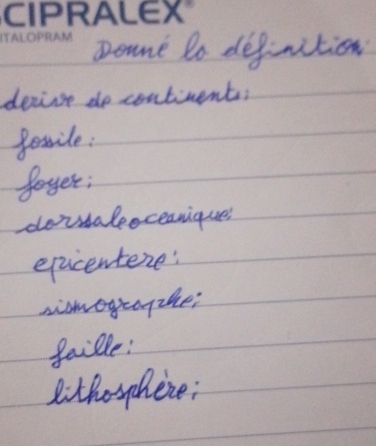 CIPRALEX®
ITALOPRAM
Donné la définition:
derive de continents:
fossile:
foyer:
dorssale oceanique:
epicentere:
sismographe:
faille:
lithosphère: